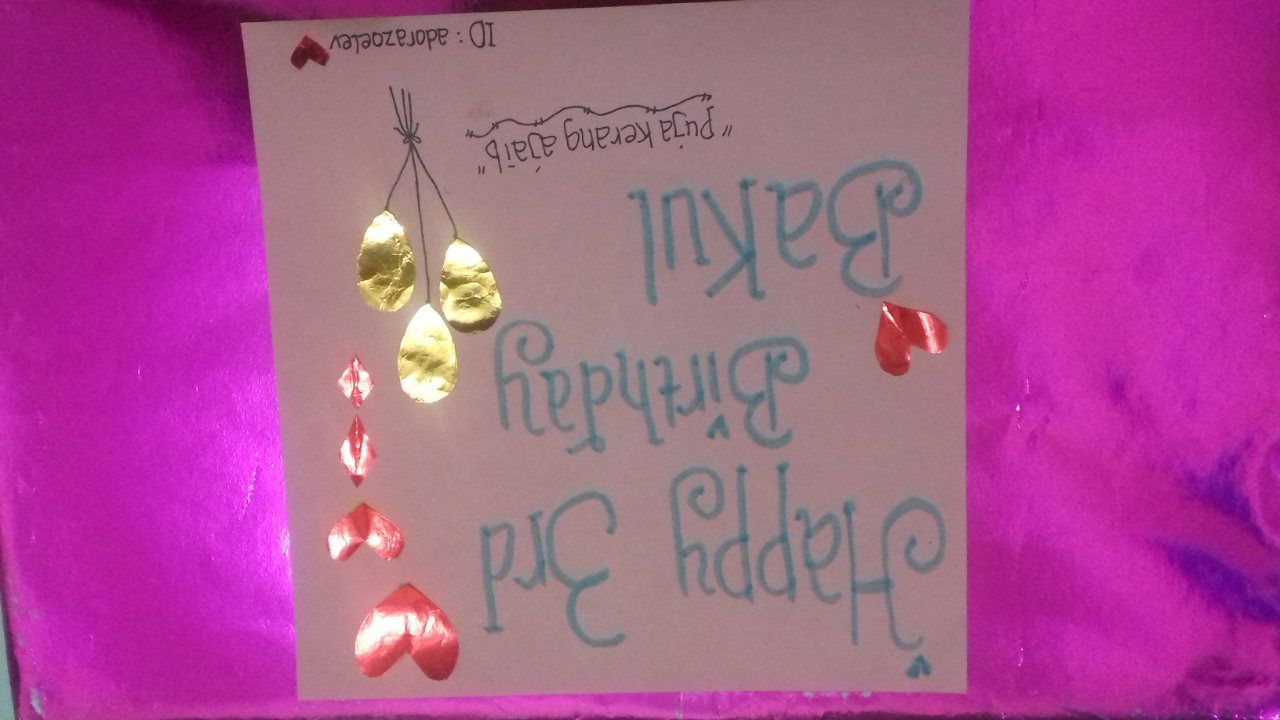 Happy 3rd
Birthday
Bakul
"Puja kerang ajaib"
ID : adorazoelev